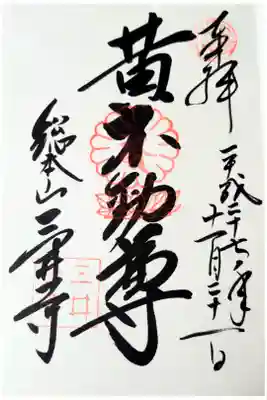 奉拝
平成二十七年
十一月二十一日
黄不動尊
総本山三井寺